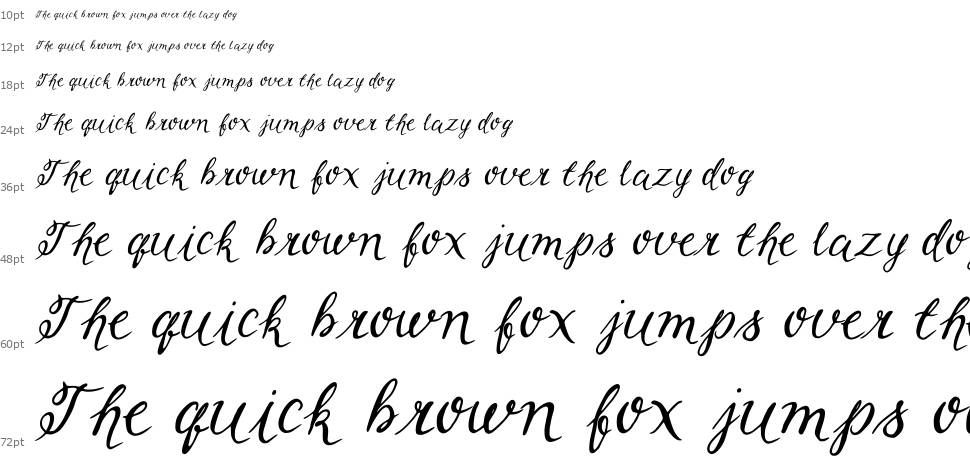 10pt The quick brown fox jumps over the lazy dog
12pt The quick brown fox jumps over the lazy dog
18pt The quick brown fox jumps over the lazy dog
24pt The quick brown fox jumps over the lazy dog
36pt The quick brown fox jumps over the lazy dog
48pt The quick brown fox jumps over the lazy do
60pt The quick brown fox jumps over th
72pt The quick brown fox jumps o